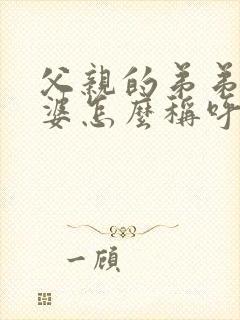 父親的弟弟
婆怎麼稱呼
一顧